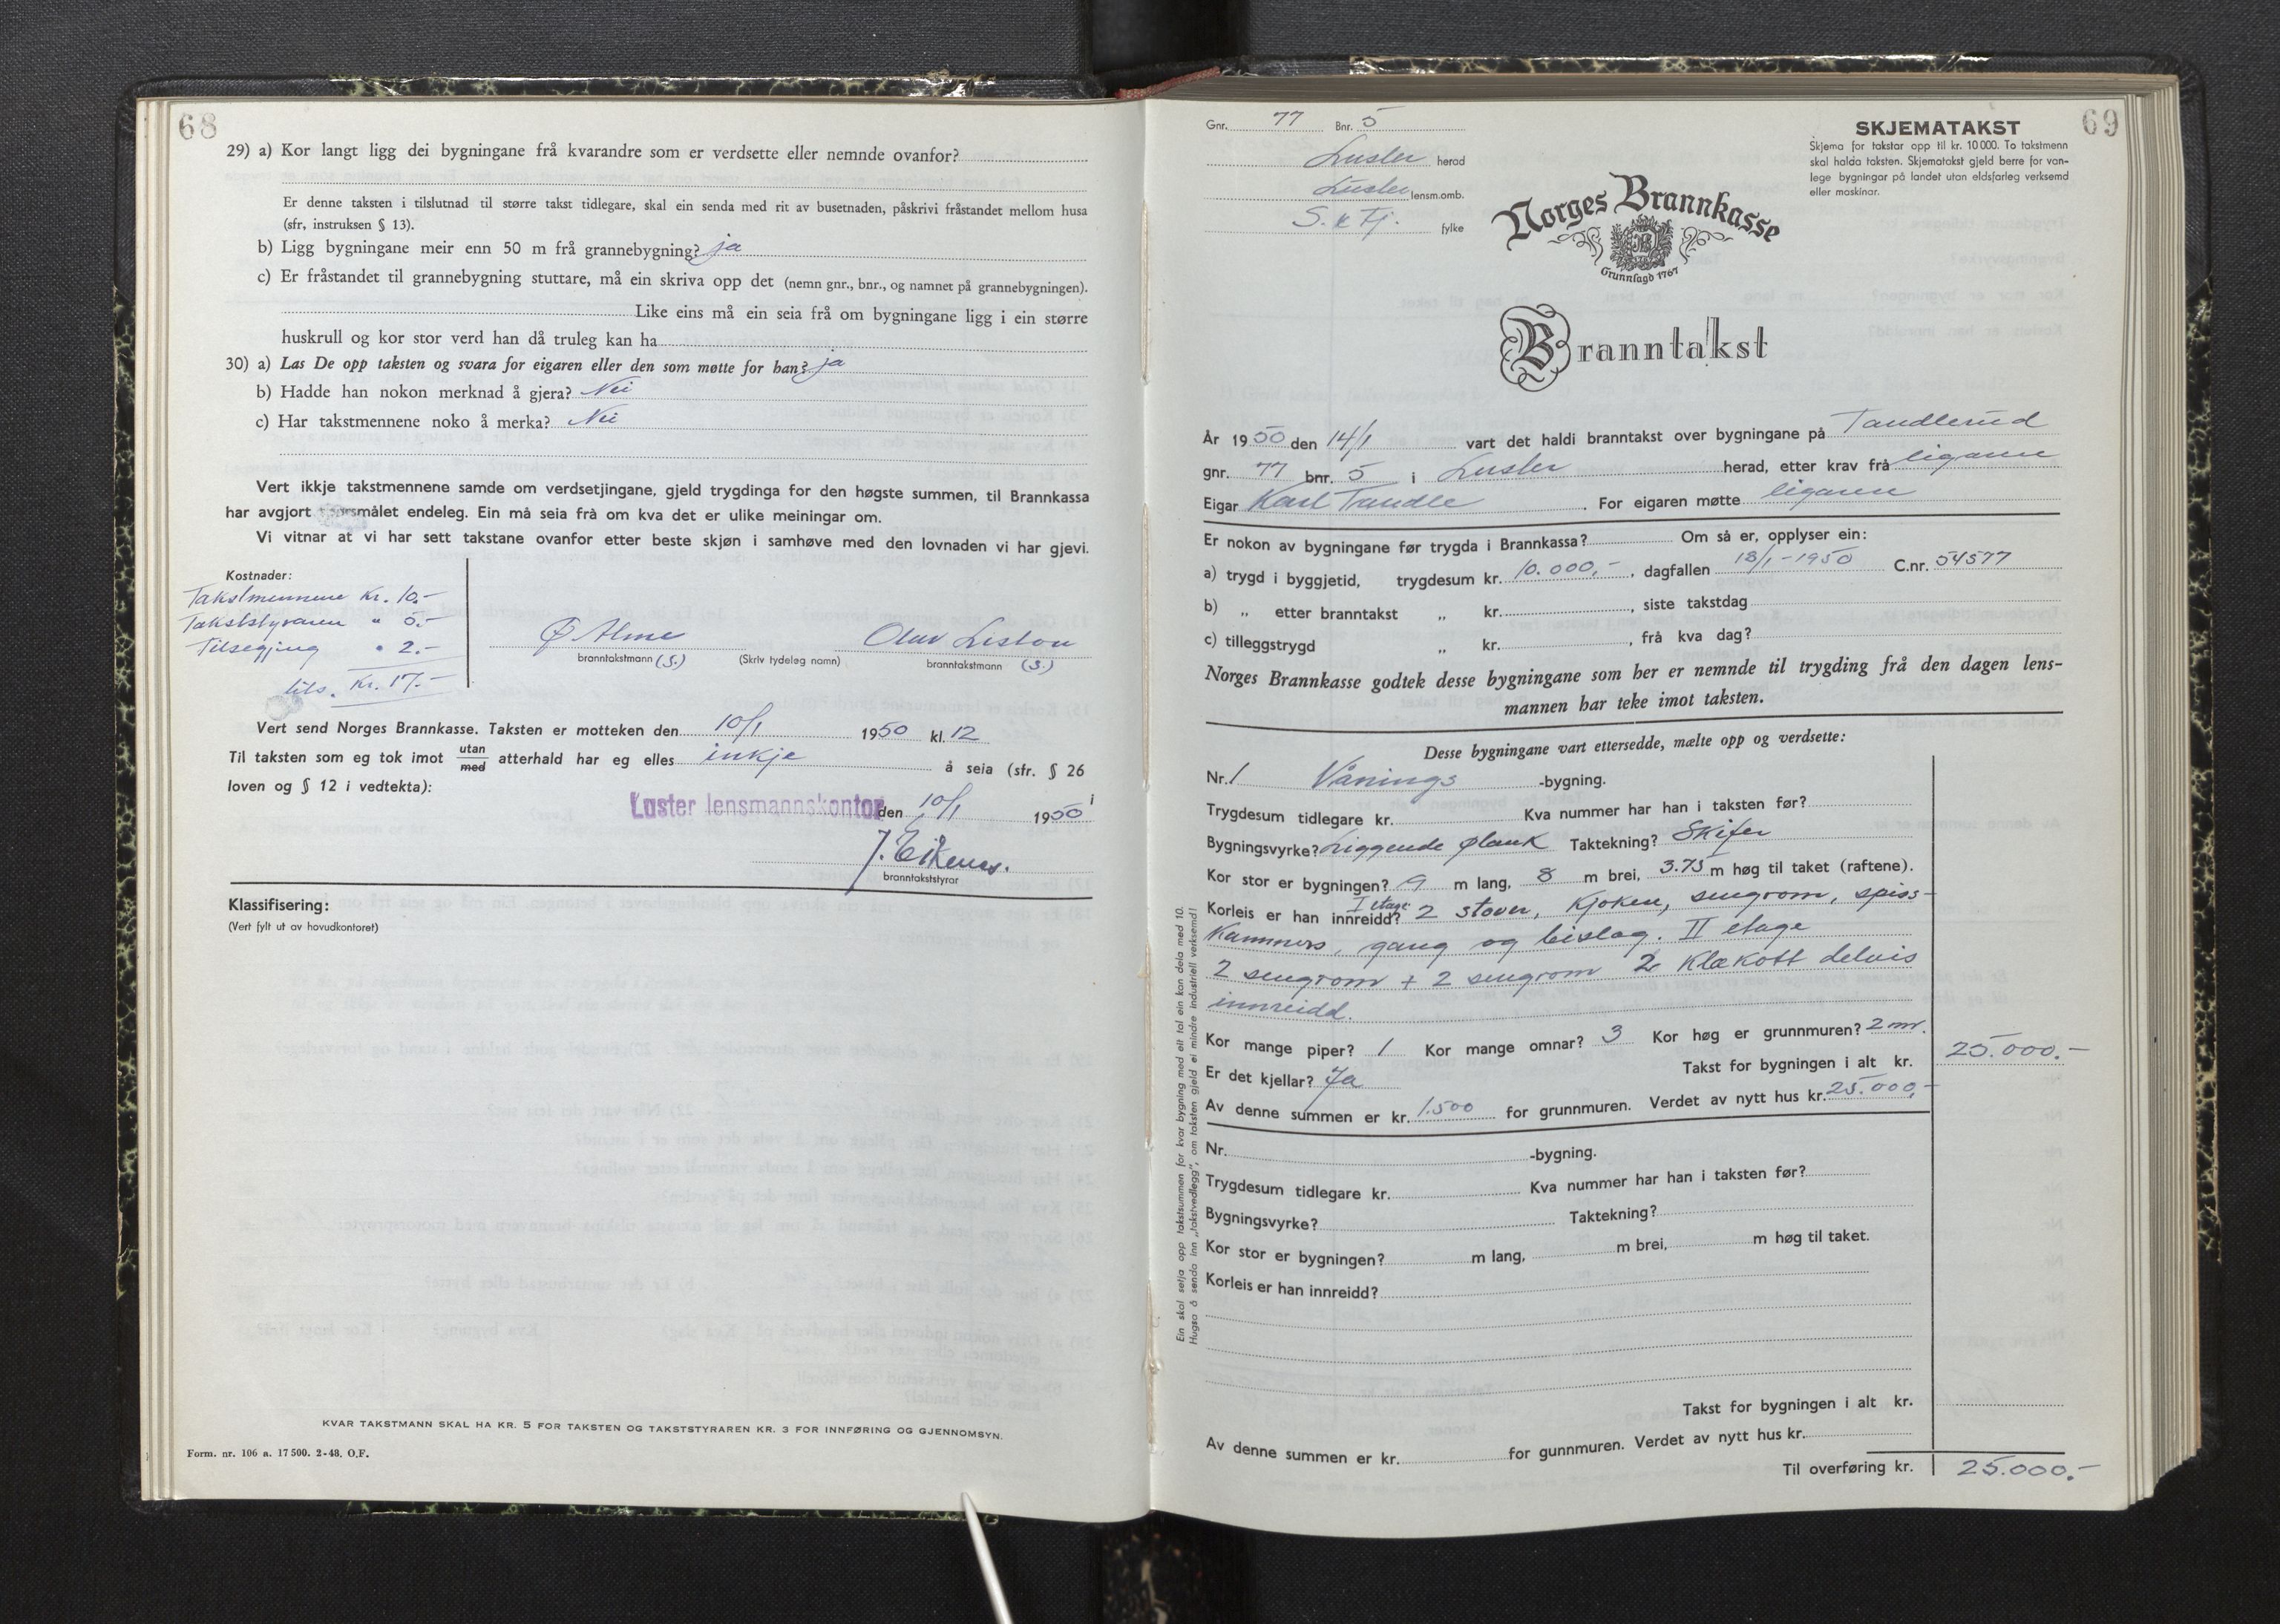 68
29) a) Kor langt ligg dei bygningane frå kvarandre som er verdsette eller nemnde ovanfor?
Er denne taksten i tilslutnad til større takst tidlegare, skal ein senda med rit av busetnaden, påskrivi fråstandet mellom husa
(sfr, instruksen § 13).
b) Ligg bygningane meir enn 50 m frå grannebygning? ja
c) Er fråstandet til grannebygning stuttare, må ein skriva opp det (nemn gnr., bnr., og namnet på grannebygningen).
Like eins må ein seia frå om bygningane ligg i ein større
huskrull og kor stor verd han då truleg kan ha
30) a) Las De opp taksten og svara for eigaren eller den som møtte for han? ja
b) Hadde han nokon merknad å gjera? Nei
c) Har takstmennene noko å merka? Nei
Vert ikkje takstmennene samde om verdsetjingane, gjeld trygdinga for den høgste summen, til Brannkassa
har avgjort spørsmålet endeleg. Ein må seia frå om kva det er ulike meiningar om.
Vi vitnar at vi har sett takstane ovanfor etter beste skjøn i samhøve med den lovnaden vi har gjevi.
Kostnader:
Takstmennene Kr. 10.-
Takststyraren " 5.-
Tilsegjing " 2.-
tils. Kr. 17.-
Ø Alme Olav Leston
branntakstmann (S.) (Skriv tydeleg namn) branntakstmann (S.)
Vert send Norges Brannkasse. Taksten er motteken den 10/1 1950 kl. 12
Til taksten som eg tok imot utan med atterhald har eg elles inkje å seia (sfr. § 26
loven og § 12 i vedtekta):
Luster lensmannskontor den 10/1 1950 i
J. Eikenes.
branntakststyrar
Klassifisering:
(Vert fylt ut av hovudkontoret)
KVAR TAKSTMANN SKAL HA KR. 5 FOR TAKSTEN OG TAKSTSTYRAREN KR. 3 FOR INNFØRING OG GJENNOMSYN.
Form. nr. 106 a. 17500. 2-48. O.F.
69
Gnr. 77 Bnr. 5
Luster herad
Luster lensm.omb.
S. & Fj. fylke
SKJEMATAKST
Skjema for takstar opp til kr. 10 000. To takstmenn
skal halda taksten. Skjematakst gjeld berre for van-
lege bygningar på landet utan eldsfarleg verksemd
eller maskinar.
Norges Brannkasse
Grunnlagd 1767
Branntakst
År 1950 den 14/1 vart det haldi branntakst over bygningane på Tandlerud
gnr. 77 bnr. 5 i Luster herad, etter krav frå eigaren
Eigar Karl Tandle. For eigaren møtte eigaren
Er nokon av bygningane før trygda i Brannkassa? Om så er, opplyser ein:
a) trygd i byggjetid, trygdesum kr. 10.000,-, dagfallen 13/1-1950 C.nr. 54577
b) „ etter branntakst „ kr. , siste takstdag
c) tilleggstrygd „ kr. , frå kva dag?
Norges Brannkasse godtek desse bygningane som her er nemnde til trygding frå den dagen lens-
mannen har teke imot taksten.
Desse bygningane vart ettersedde, mælte opp og verdsette:
Nr. 1 Vånings -bygning.
Trygdesum tidlegare kr. Kva nummer har han i taksten før?
Bygningsvyrke? Liggende plank Taktekning? Skifer
Kor stor er bygningen? 9 m lang, 8 m brei, 3.75 m høg til taket (raftene).
Korleis er han innreidd? I etage 2 stover, kjøken, sengrom, spiss-
kammers, gang og bislag. II etage
2 sengrom + 2 sengrom 2 klekott delvis
innreidd.
Kor mange piper? 1 Kor mange omnar? 3 Kor høg er grunnmuren? 2 m.
Er det kjellar? Ja Takst for bygningen i alt kr. 25.000.-
Av denne summen er kr. 1.500 for grunnmuren. Verdet av nytt hus kr. 25.000,-
Nr. -bygning.
Trygdesum tidlegare kr. Kva nummer har han i taksten før?
Bygningsvyrke? Taktekning?
Kor stor er bygningen? m lang, m brei, m høg til taket.
Korleis er han innreidd?
Takst for bygningen i alt kr.
Av denne summen er kr. for gunnmuren. Verdet av nytt hus kr.
Til overføring kr. 25.000.-
Ein skal setja opp takstsummen for kvar bygning med eit tal ein kan dela med 10.
Hugsa å senda inn „takstvedlegg", om taksten gjeld ei mindre industriell verksemd!